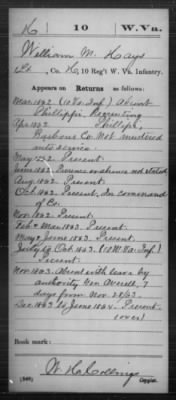 K | 10 | W. Va.
William M. Hays
Lt., Co. K, 10 Reg't W. Va. Infantry.
Appears on Returns as follows:
Mar. 1862 (10 Va. Inf.) Absent
Phillippi, Recruiting
Apr. 1862 Phillippi,
Barbour Co. Not mustered
into service.
May 1862 Present.
June 1862 Presence or absence not stated
Aug. 1862 Present.
Oct. 1862 Present. In command
of Co.
Nov. 1862 Present.
Feb & Mar. 1863. Present.
May & June 1863. Present.
July to Oct. 1863. (10 W. Va. Inf.)
Present.
Nov. 1863. Absent with leave by
authority Gen Averell, 7
days from Nov. 28/63.
Dec. 1863 to June 1864. Present.
(over)
Book mark:
(546)
Copyist.